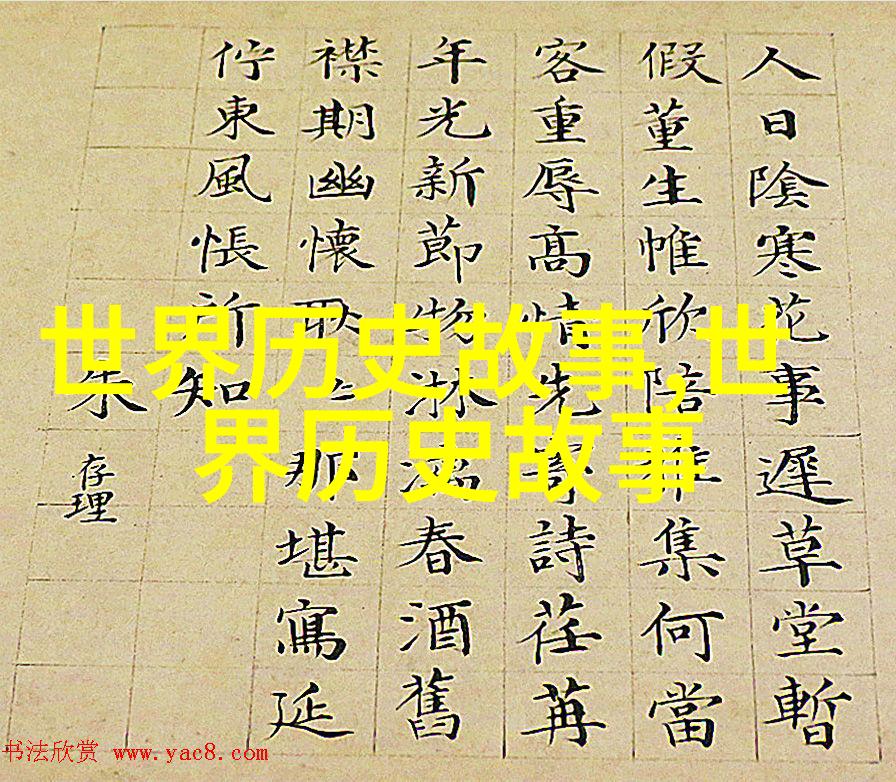 人日陰寒花事遲草堂暫
假董生帷欣陪集何當
客重辱高情先詩荏苒
年光新節物淋漓春酒舊
襟期幽懷耿〻那堪寫延
佇東風悵所知
朱存理
世界历史故事,世
界历史故事
书法欣赏 www.yac8.com